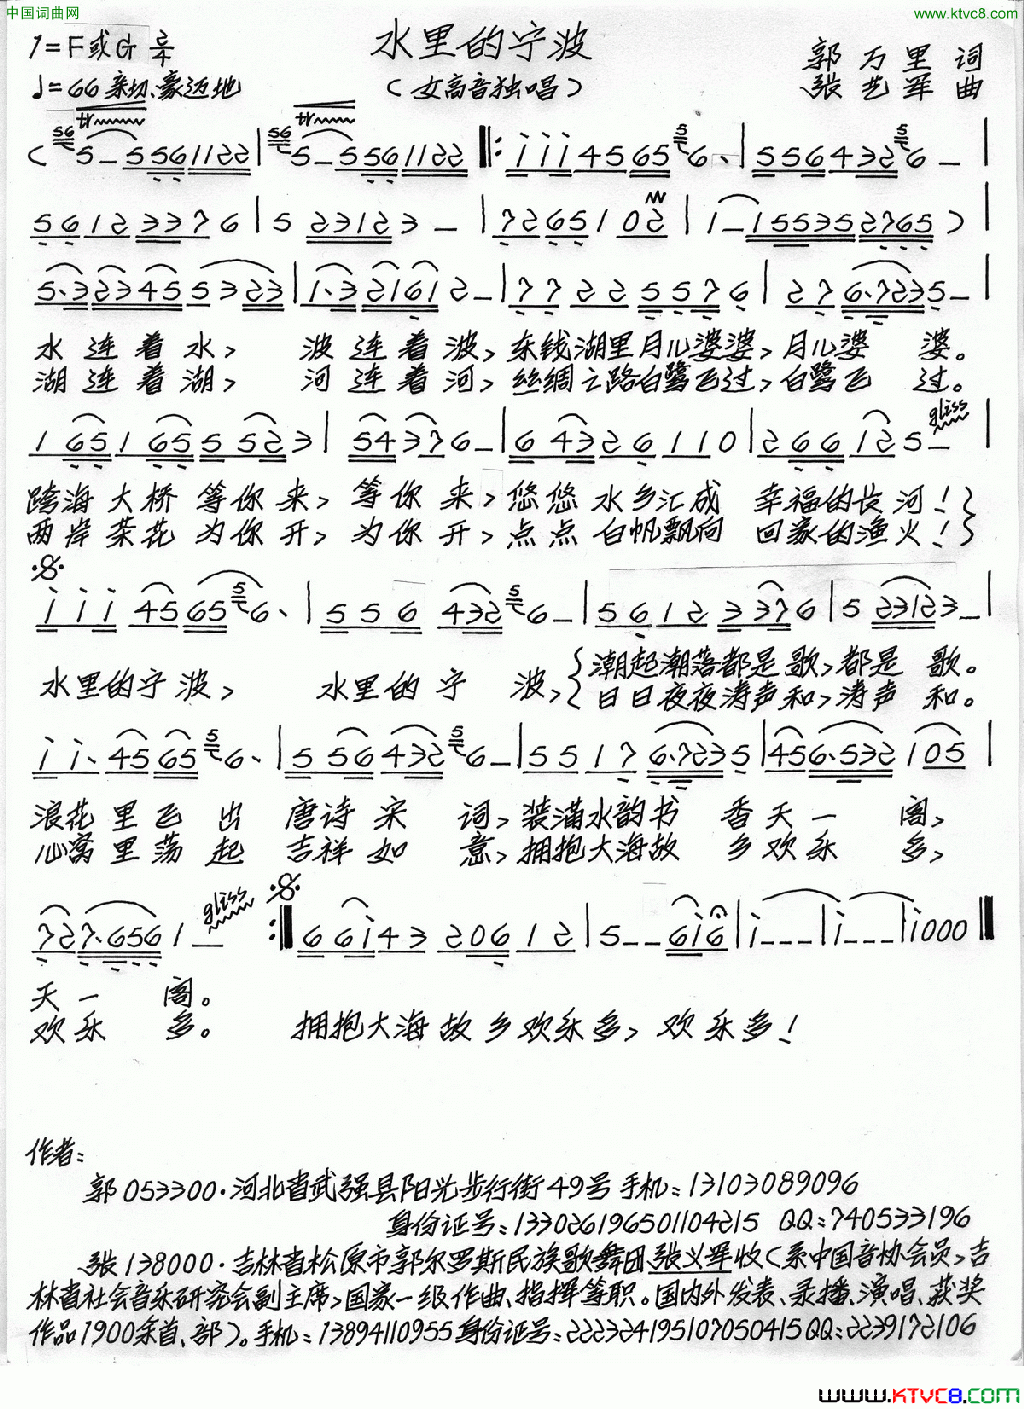 中国词曲网
www.ktvc8.com
水里的宁波
1=F或G
♩=66 亲切、豪迈地
(女高音独唱)
郭万里 词
张艺军 曲
水连着水, 波连着波, 东钱湖里月儿婆婆, 月儿婆婆。
湖连着湖, 河连着河, 丝绸之路白鹭飞过, 白鹭飞过。
gliss
跨海大桥等你来, 等你来, 悠悠水乡汇成幸福的长河!
两岸茶花为你开, 为你开, 点点白帆飘向回家的渔火!
水里的宁波, 水里的宁波, 潮起潮落都是歌, 都是歌。
日日夜夜涛声和, 涛声和。
浪花里飞出唐诗宋词, 装满水韵书香天一阁,
心窝里荡起吉祥如意, 拥抱大海故乡欢乐多,
gliss
天一阁。
欢乐多。 拥抱大海故乡欢乐多, 欢乐多!
作者:
郭053300·河北省武强县阳光步行街49号 手机:13103089096
身份证号:133026196501104215 QQ:740533196
张138000·吉林省松原市郭尔罗斯民族歌舞团张义军收(系中国音协会员,吉
林省社会音乐研究会副主席,国家一级作曲、指挥等职。国内外发表、录播、演唱、获奖
作品1900余首、部)。手机:13894110955 身份证号:222324195107050415 QQ:2239172106
www.KTVC8.com